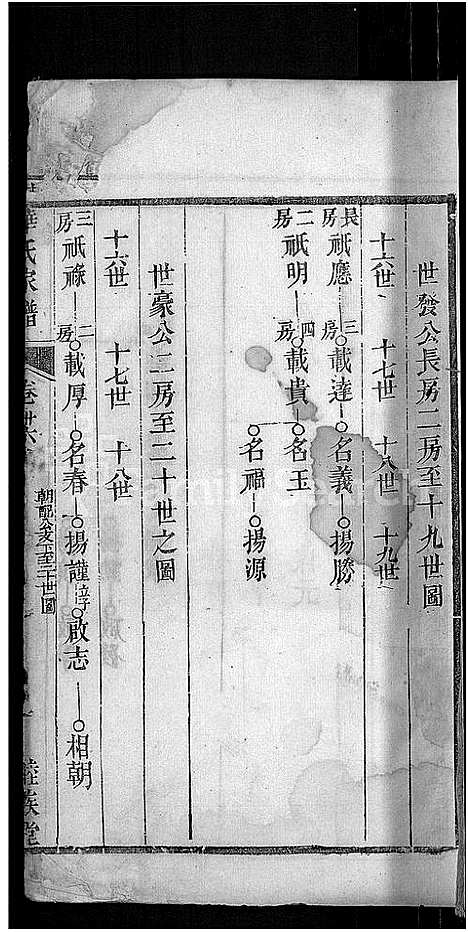 世發公長房二房至十九世圖
十六世 十七世 十八世 十九世
長房 祇應 三房 載達 名義 揚勝
二房 祇明 四房 載貴 名玉
名福 揚源
世豪公三房至二十世之圖
十六世 十七世 十八世
三房 祇祿 二房 載厚 名春 揚謹 啟志 相朝
氏家譜 卷廿六 朝配公支下至二十世圖 睦族堂